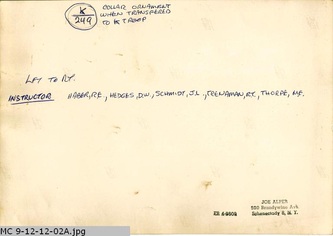 K
249
COLLAR ORNAMENT
WHEN TRANSFERED
TO K TROOP
LFT TO RT.
INSTRUCTOR HABER, R.E., HEDGES, D.W., SCHMIDT, J.L., TRENAMAN, R.T., THORPE, M.F.
JOE ALPER
Brandywine Ave
Schenectady 8, N.Y.
MC 9-12-12-02A.jpg